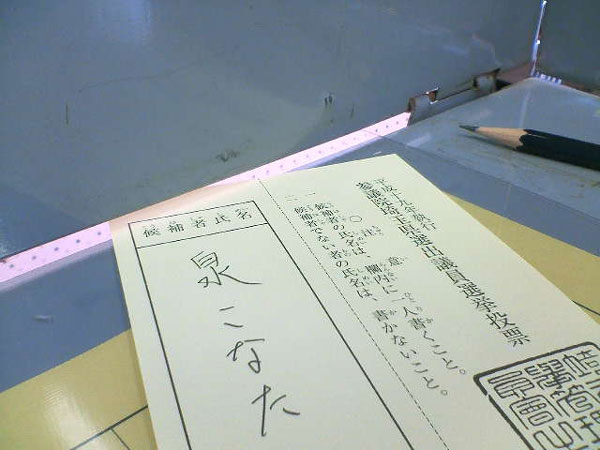 平成十九年執行
参議院埼玉県選出議員選挙投票
〇注意
一 候補者の氏名は、欄内に一人書くこと。
二 候補者でない者の氏名は、書かないこと。
候補者氏名
泉こなた